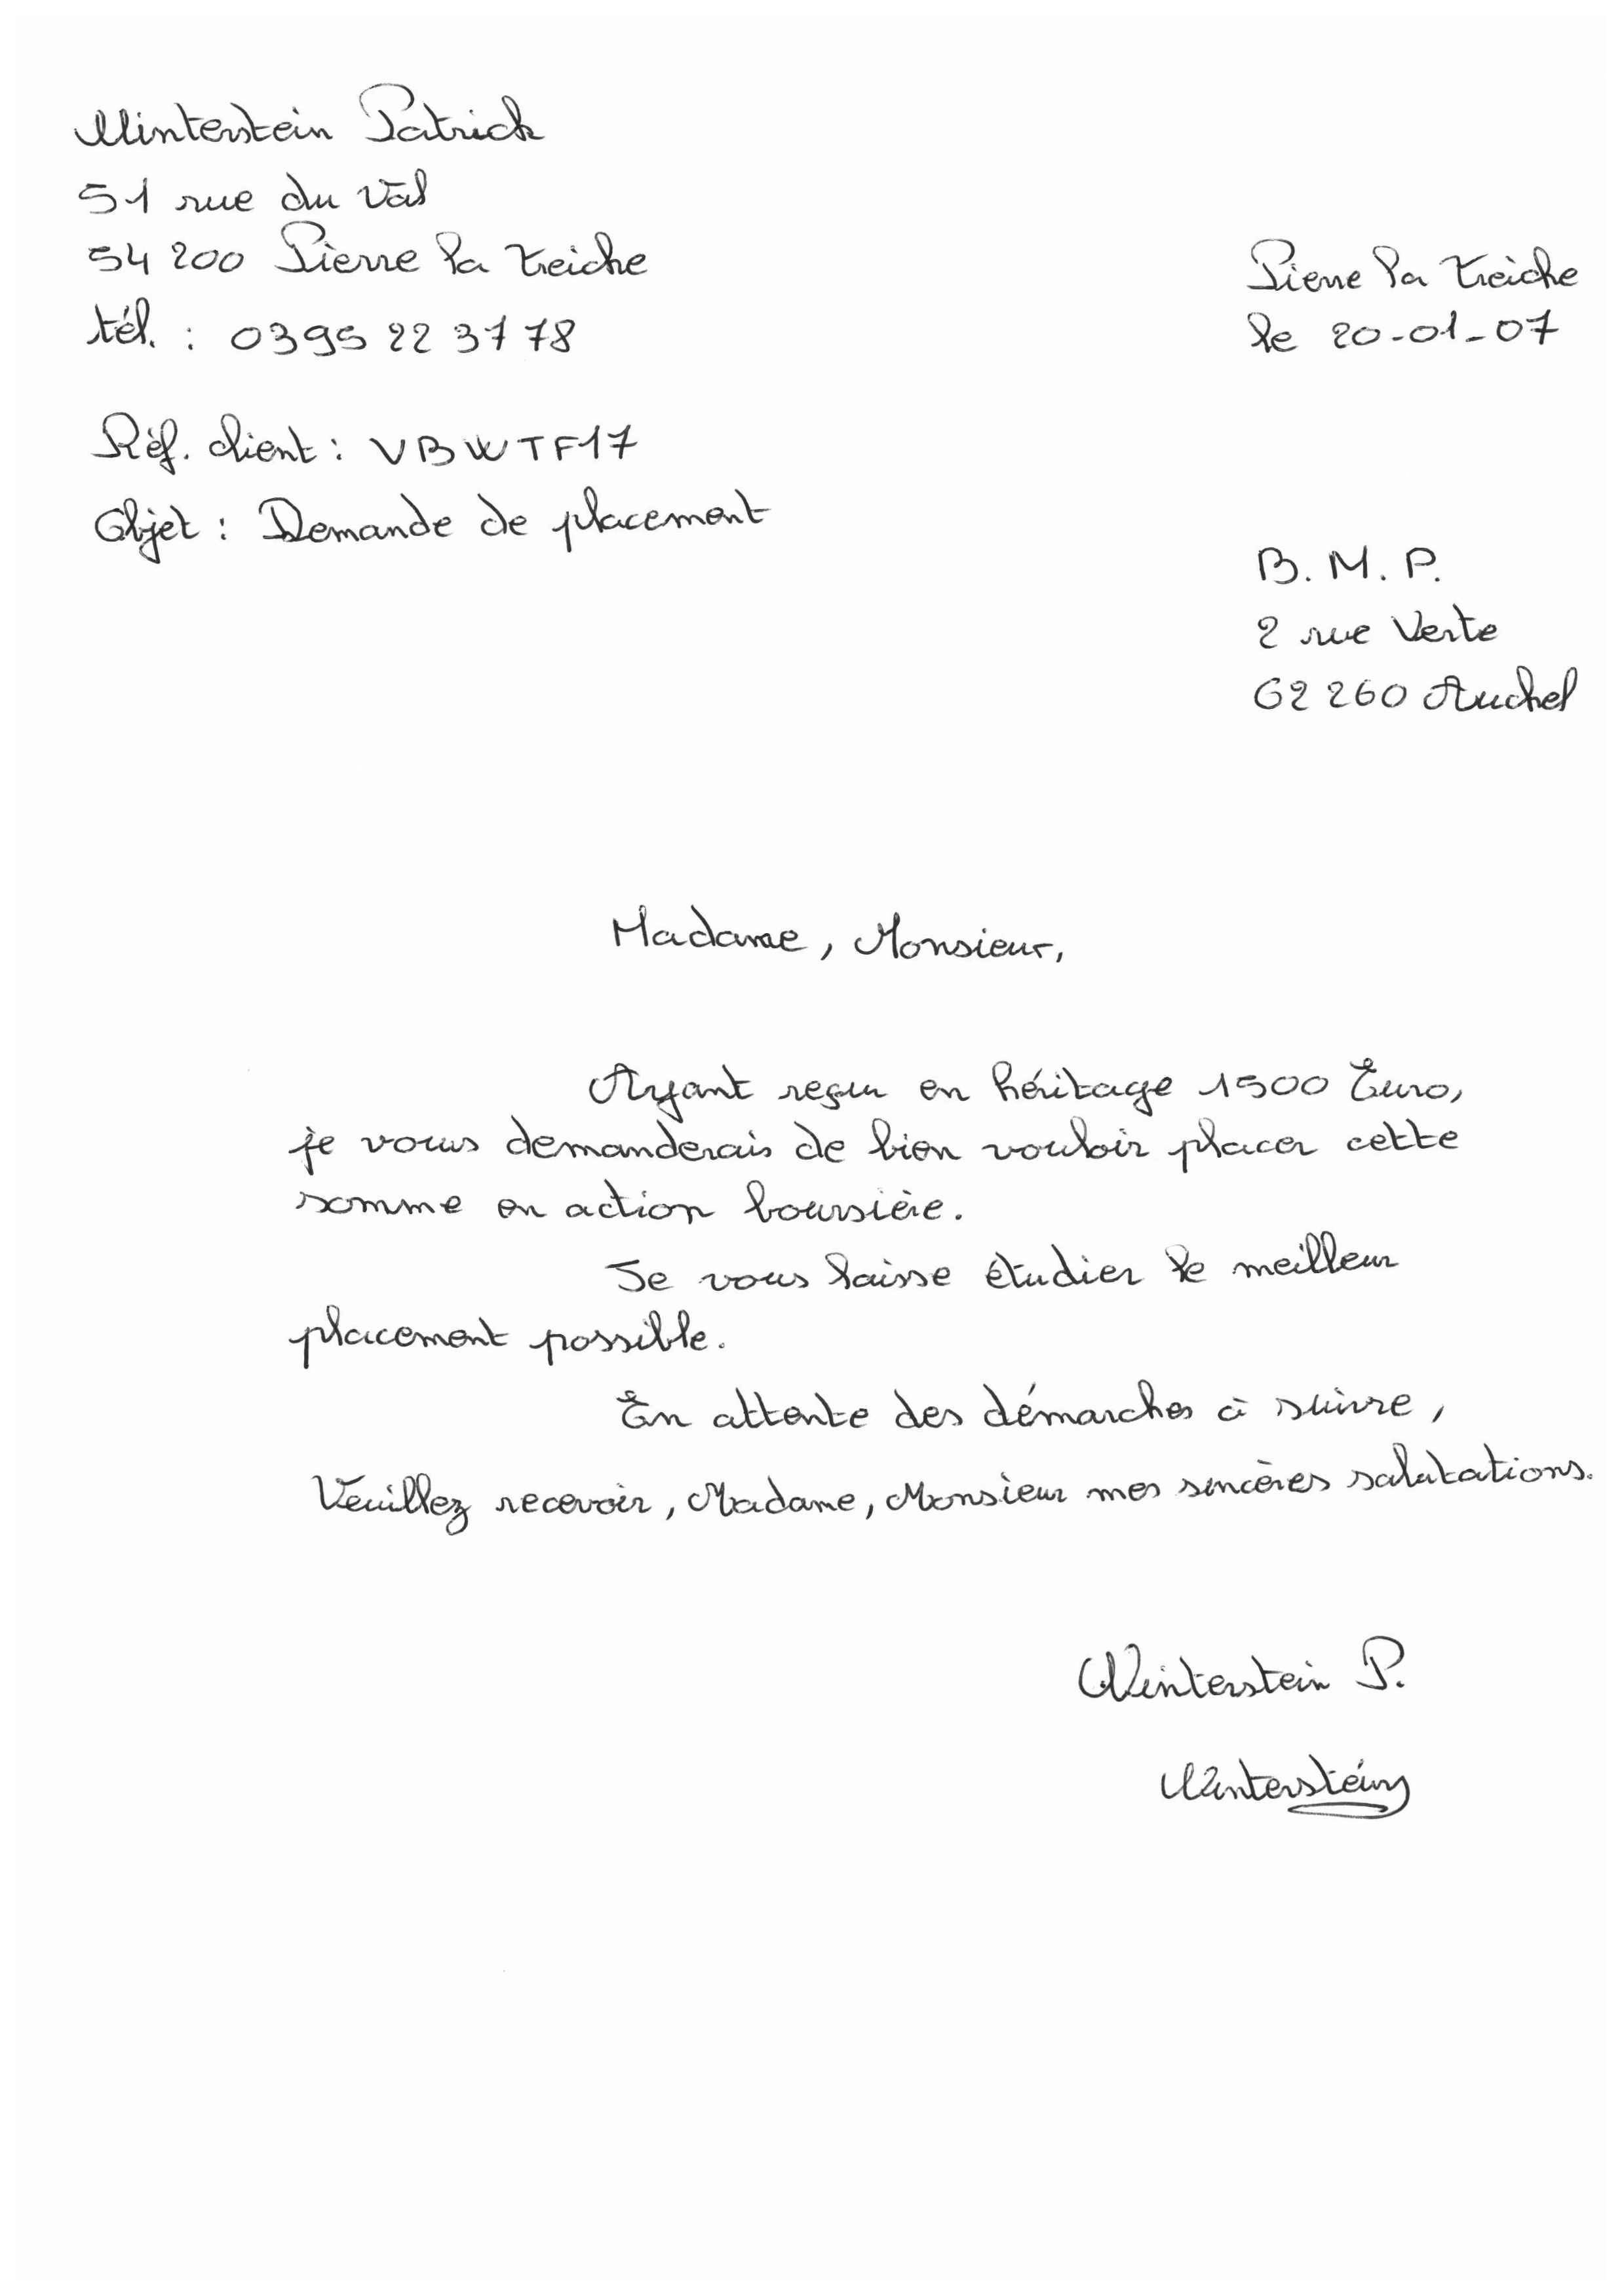 Winterstein Patrick
51 rue du Val
54 200 Pierre la treiche
tél. : 0395 22 37 78
Pierre la treiche
le 20-01-07
Réf. client : VBWTF17
Objet : Demande de placement
B. M. P.
2 rue Verte
62 260 Auchel
Madame, Monsieur,
Ayant reçu en héritage 1500 Euro,
je vous demanderais de bien vouloir placer cette
somme en action boursière.
Je vous laisse étudier le meilleur
placement possible.
En attente des démarches à suivre,
Veuillez recevoir, Madame, Monsieur mes sincères salutations.
Winterstein P.
Winterstein